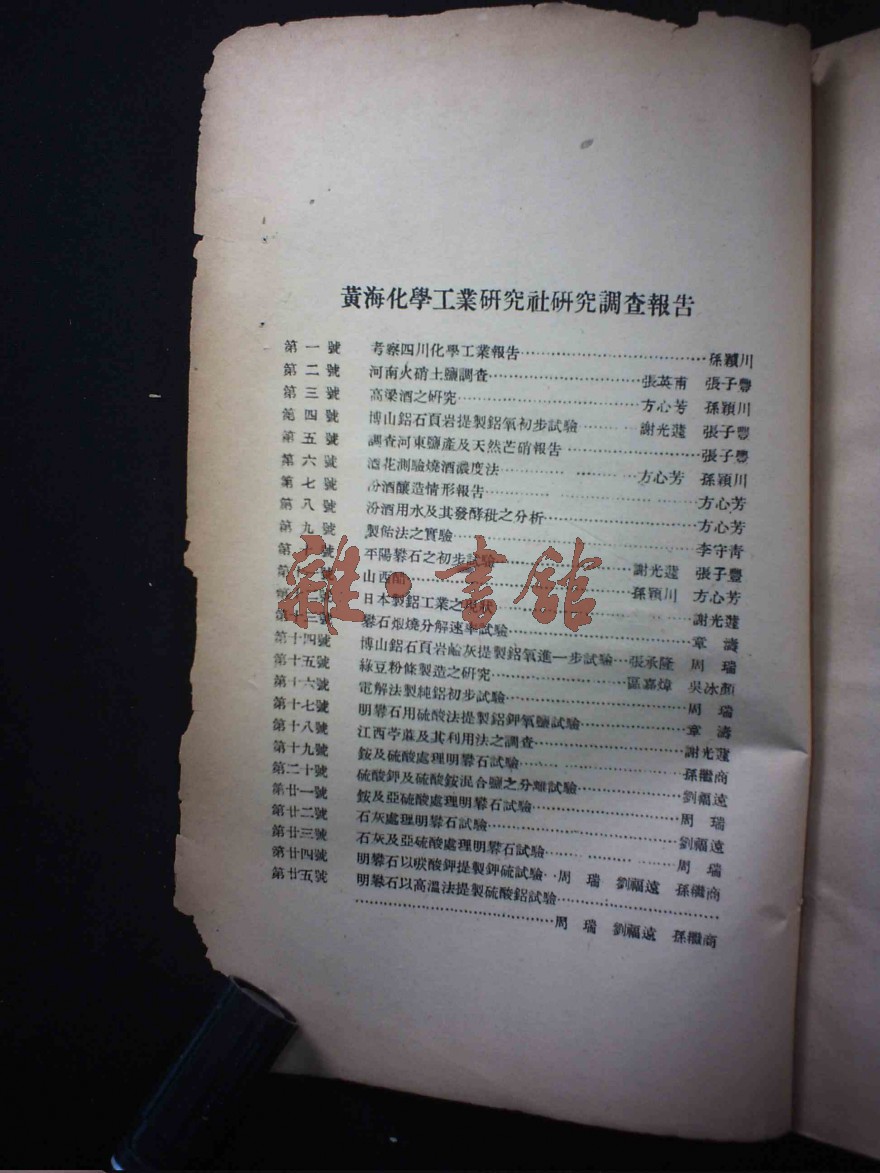 黃海化學工業研究社研究調查報告
第一號 考察四川化學工業報告……孫穎川
第二號 河南火硝土鹽調查……張英甫 張子豐
第三號 高梁酒之研究……方心芳 孫穎川
第四號 博山鋁石頁岩提製鋁氧初步試驗……謝光蘧 張子豐
第五號 調查河東鹽產及天然芒硝報告……張子豐
第六號 酒花測驗燒酒濃度法……方心芳 孫穎川
第七號 汾酒釀造情形報告……方心芳
第八號 汾酒用水及其發酵秕之分析……方心芳
第九號 製飴法之實驗……李守青
第十號 平陽礬石之初步試驗……謝光蘧 張子豐
第十一號 山西醋……孫穎川 方心芳
第十二號 日本製鋁工業之現狀……謝光蘧
第十三號 礬石煅燒分解速率試驗……章濤
第十四號 博山鋁石頁岩鹼灰提製鋁氧進一步試驗…張承隆 周瑞
第十五號 綠豆粉條製造之研究……區嘉煒 吳冰顏
第十六號 電解法製純鋁初步試驗……周瑞
第十七號 明礬石用硫酸法提製鋁鉀氧鹽試驗……章濤
第十八號 江西苧蔴及其利用法之調查……謝光蘧
第十九號 銨及硫酸處理明礬石試驗……孫繼商
第二十號 硫酸鉀及硫酸銨混合鹽之分離試驗……劉福遠
第廿一號 銨及亞硫酸處理明礬石試驗……周瑞
第廿二號 石灰處理明礬石試驗……劉福遠
第廿三號 石灰及亞硫酸處理明礬石試驗……周瑞
第廿四號 明礬石以碳酸鉀提製鉀硫試驗…周瑞 劉福遠 孫繼商
第廿五號 明礬石以高溫法提製硫酸鋁試驗……
……周瑞 劉福遠 孫繼商
雜·書館